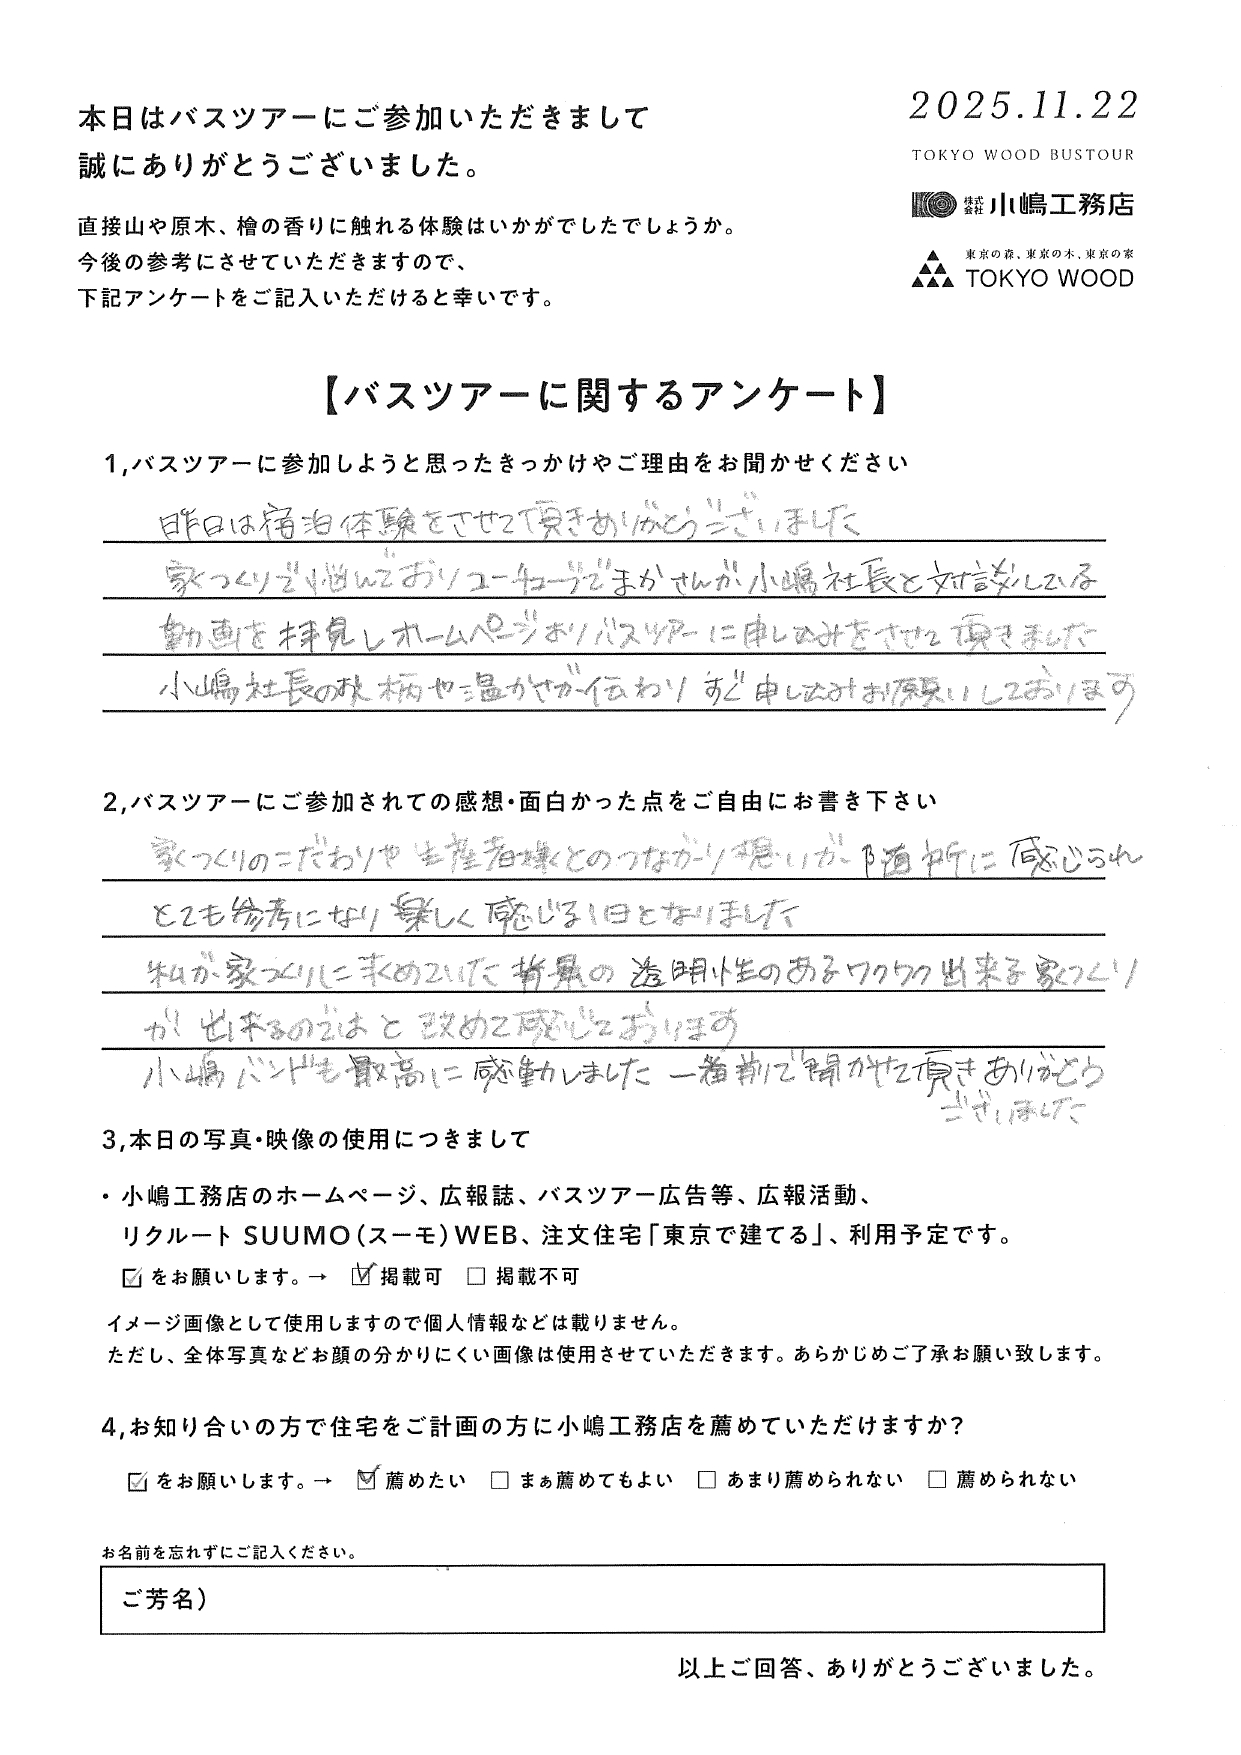 本日はバスツアーにご参加いただきまして
誠にありがとうございました。
直接山や原木、檜の香りに触れる体験はいかがでしたでしょうか。
今後の参考にさせていただきますので、
下記アンケートをご記入いただけると幸いです。
2025.11.22
TOKYO WOOD BUSTOUR
株式会社 小嶋工務店
東京の森、東京の木、東京の家
TOKYO WOOD
【バスツアーに関するアンケート】
1,バスツアーに参加しようと思ったきっかけやご理由をお聞かせください
昨日は宿泊体験をさせて頂きありがとうございました
家づくりで悩んでおりユーチューブでまかさんが小嶋社長と対談している
動画を拝見しホームページよりバスツアーに申し込みをさせて頂きました
小嶋社長の人柄や温かさが伝わりすぐ申し込みお願いしております
2,バスツアーにご参加されての感想・面白かった点をご自由にお書き下さい
家づくりのこだわりや生産者様とのつながり想いが随所に感じられ
とても参考になり楽しく感じる1日となりました
私が家づくりに求めていた背景の透明性のあるワクワク出来る家づくり
が出来るのではと改めて感じております
小嶋バンドも最高に感動しました 一番前で聞かせて頂きありがとう
ございました
3,本日の写真・映像の使用につきまして
・小嶋工務店のホームページ、広報誌、バスツアー広告等、広報活動、
リクルート SUUMO(スーモ)WEB、注文住宅「東京で建てる」、利用予定です。
☑をお願いします。→ ☑掲載可 □掲載不可
イメージ画像として使用しますので個人情報などは載りません。
ただし、全体写真などお顔の分かりにくい画像は使用させていただきます。あらかじめご了承お願い致します。
4,お知り合いの方で住宅をご計画の方に小嶋工務店を薦めていただけますか?
☑をお願いします。→ ☑薦めたい □まぁ薦めてもよい □あまり薦められない □薦められない
お名前を忘れずにご記入ください。
ご芳名)
以上ご回答、ありがとうございました。